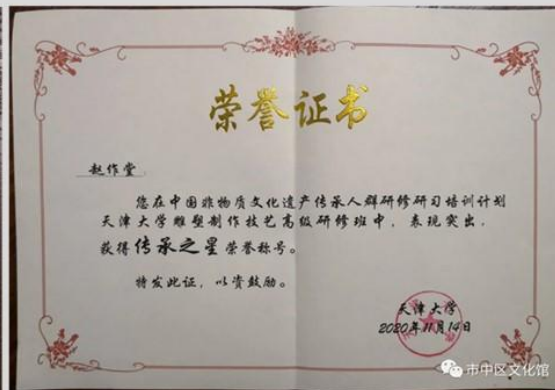 荣誉证书
赵作堂
您在中国非物质文化遗产传承人群研修研习培训计划
天津大学雕塑制作技艺高级研修班中，表现突出，
获得传承之星荣誉称号。
特发此证，以资鼓励。
天津大学
2020年11月14日
市中区文化馆